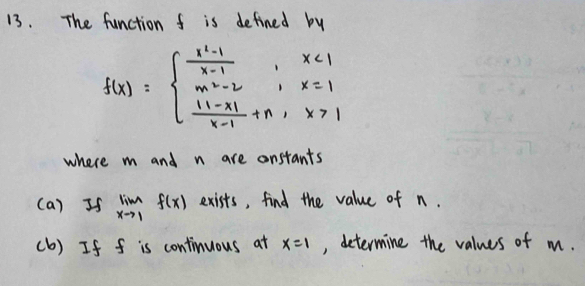 13. The function f is defined by
f(x) = { (x²-1)/(x-1) , x<1
m²-2 , x=1
|1-x|/(x-1) +n , x>1
where m and n are constants
(a) If lim x→1 f(x) exists, find the value of n.
(b) If f is continuous at x=1, determine the values of m.